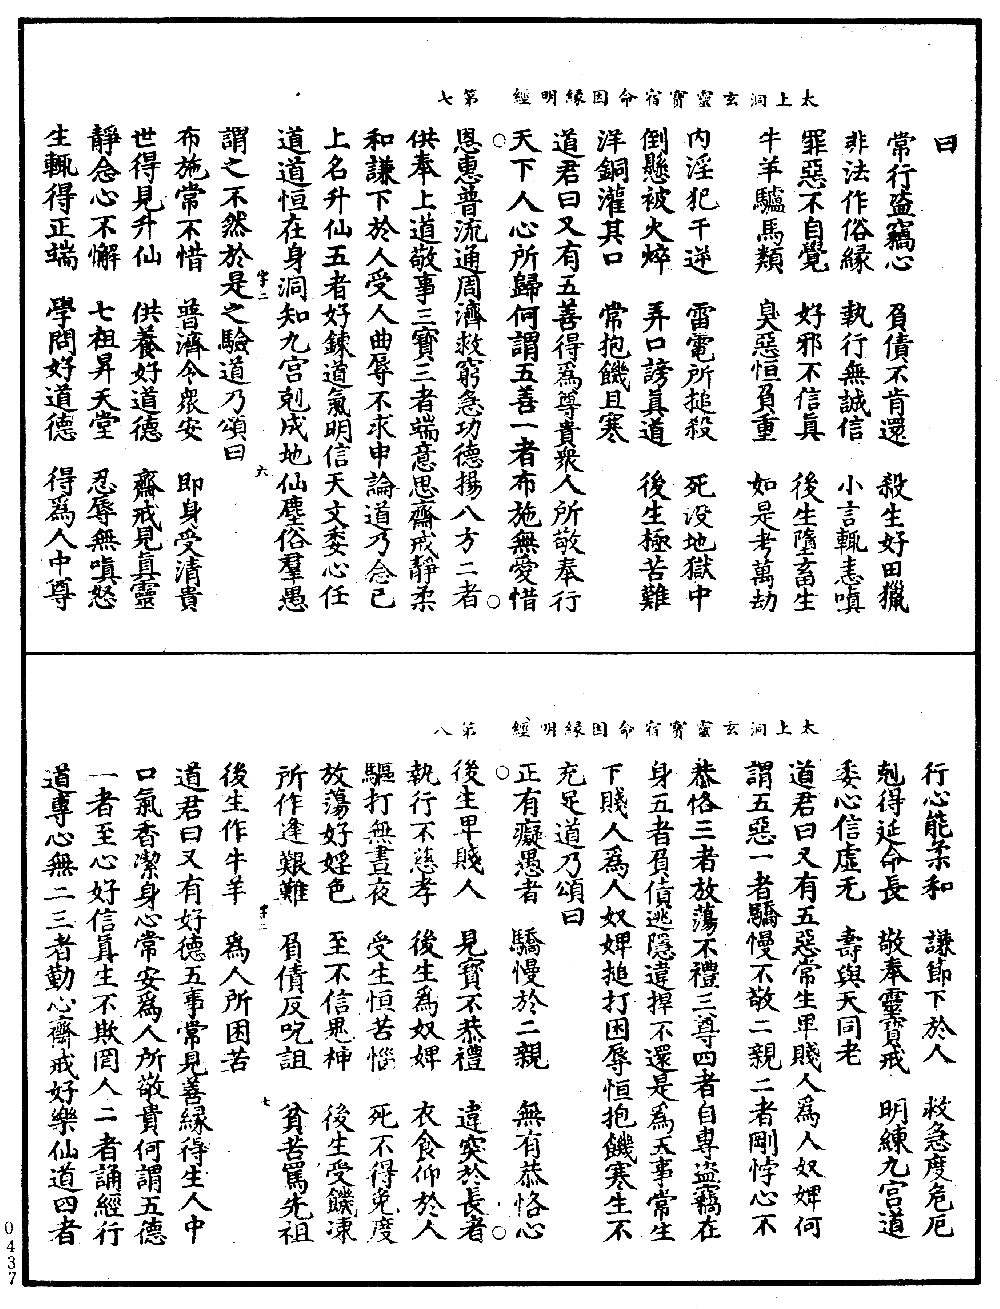 太上洞玄靈寶宿命因緣明經　第七
曰
常行盗竊心　負債不肯還　殺生好田獵
非法作俗緣　執行無誠信　小言輒恚嗔
罪惡不自覺　好邪不信真　後生墮畜生
牛羊驢馬類　臭惡恒負重　如是考萬劫
內淫犯干逆　雷電所搥殺　死没地獄中
倒懸被火焠　弄口謗真道　後生極苦難
洋銅灌其口　常抱饑且寒
道君曰又有五善得為尊貴衆人所敬奉行
天下人心所歸何謂五善一者布施無愛惜
恩惠普流通周濟救窮急功德揚八方二者
供奉上道敬事三寳三者端意思齋戒靜柔
和謙下於人受人曲辱不求申論道乃念己
上名升仙五者好鍊道氣明信天文委心任
道道恒在身洞知九宫剋成地仙塵俗羣愚
謂之不然於是之驗道乃頌曰
字二　六
布施常不惜　普濟令衆安　即身受清貴
世得見升仙　供養好道德　齋戒見真靈
靜念心不懈　七祖昇天堂　忍辱無嗔怒
生輒得正端　學問好道德　得為人中尊
太上洞玄靈寶宿命因緣明經　第八
行心能柔和　謙節下於人　救急度危厄
剋得延命長　敬奉靈寳戒　明練九宫道
委心信虚无　壽與天同老
道君曰又有五惡常生卑賤人為人奴婢何
謂五惡一者驕慢不敬二親二者剛悖心不
恭恪三者放蕩不禮三尊四者自專盗竊在
身五者負債逃隱違捍不還是為天事常生
下賤人為人奴婢搥打困辱恒抱饑寒生不
充足道乃頌曰
正有癡愚者　驕慢於二親　無有恭恪心
後生卑賤人　見寳不恭禮　違突於長者
執行不慈孝　後生為奴婢　衣食仰於人
驅打無晝夜　受生恒苦惱　死不得免度
放蕩好婬色　至不信鬼神　後生受饑凍
所作逢艱難　負債反呪詛　貧苦罵先祖
字二　七
後生作牛羊　為人所困苦
道君曰又有好德五事常見善緣得生人中
口氣香潔身心常安為人所敬貴何謂五德
一者至心好信真生不欺罔人二者誦經行
道專心無二三者勤心齋戒好樂仙道四者
0437